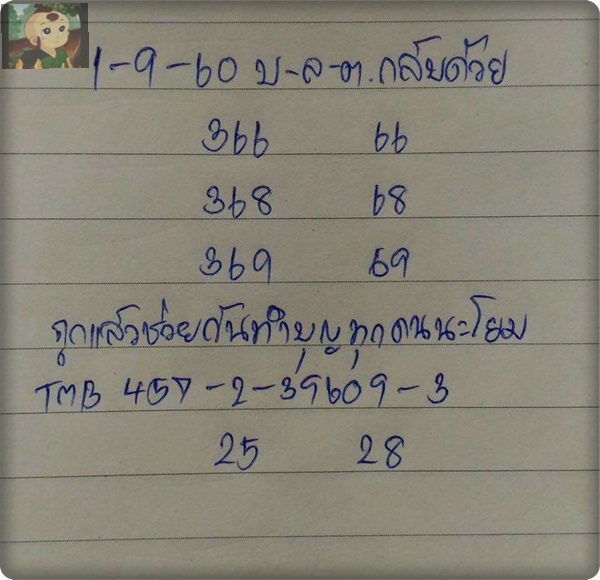 1-9-60 บ-ล-ต.กลับด้วย
366 66
368 68
369 69
ถูกแล้วช่วยกันทำบุญทุกคนนะโยม
TMB 457-2-39609-3
25 28